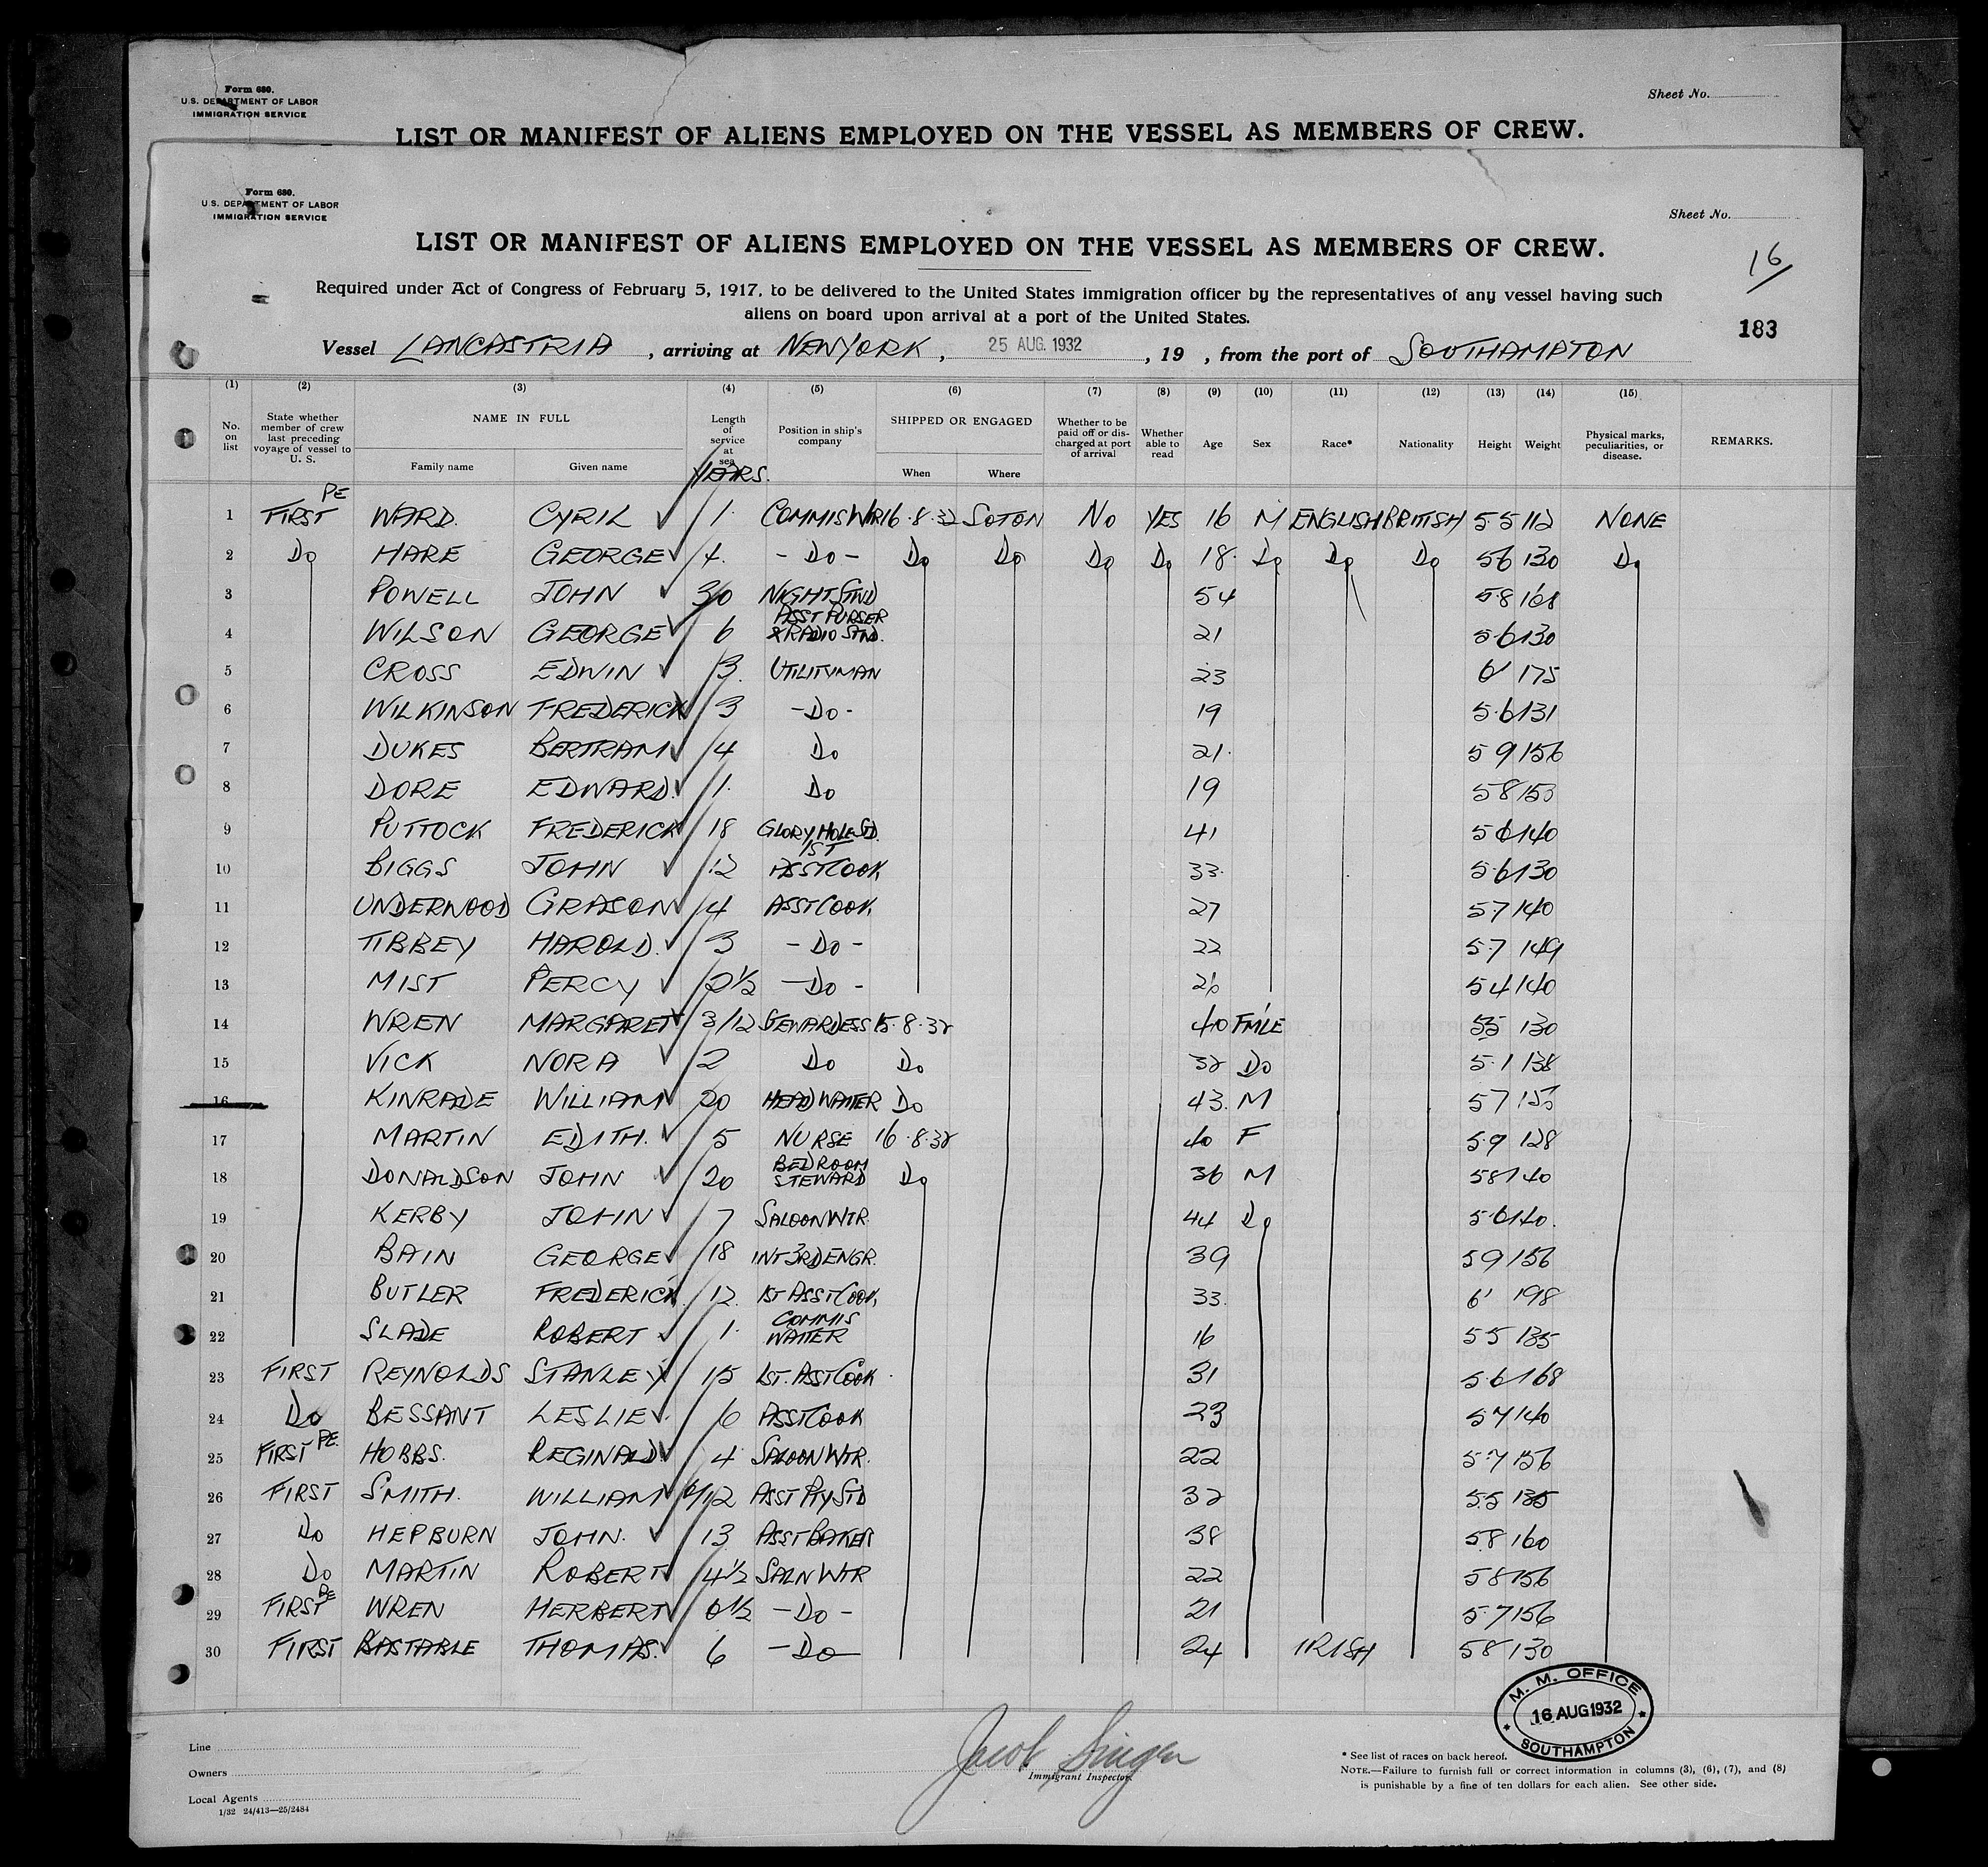 Form 680.
U.S. DEPARTMENT OF LABOR
IMMIGRATION SERVICE
Sheet No.
LIST OR MANIFEST OF ALIENS EMPLOYED ON THE VESSEL AS MEMBERS OF CREW.
Form 680.
U.S. DEPARTMENT OF LABOR
IMMIGRATION SERVICE
Sheet No.
LIST OR MANIFEST OF ALIENS EMPLOYED ON THE VESSEL AS MEMBERS OF CREW.
16
Required under Act of Congress of February 5, 1917, to be delivered to the United States immigration officer by the representatives of any vessel having such
aliens on board upon arrival at a port of the United States.
183
Vessel LANCASTRIA, arriving at NEW YORK, 25 AUG. 1932, 19 , from the port of SOUTHAMPTON
(1) (2) (3) (4) (5) (6) (7) (8) (9) (10) (11) (12) (13) (14) (15)
No. on list State whether member of crew last preceding voyage of vessel to U. S. NAME IN FULL Family name Given name Length of service at sea YEARS. Position in ship's company SHIPPED OR ENGAGED When Where Whether to be paid off or discharged at port of arrival Whether able to read Age Sex Race* Nationality Height Weight Physical marks, peculiarities, or disease. REMARKS.
PE
1 FIRST WARD. CYRIL 1 COMMIS WTR 16.8.32 SOTON NO YES 16 M ENGLISH BRITISH 5.5 112 NONE
2 Do HARE GEORGE 4. - Do - Do Do Do Do 18. Do Do Do 5 6 130 Do
3 POWELL JOHN 30 NIGHT STWD 54 5.8 168
4 WILSON GEORGE 6 ASST PURSER & RADIO STWD. 21 5.6 130
5 CROSS EDWIN 3. UTILITYMAN 23 6' 175
6 WILKINSON FREDERICK 3 - Do - 19 5.6 131
7 DUKES BERTRAM 4 Do 21. 5 9 156
8 DORE EDWARD. 1. Do 19 5 8 153
9 PUTTOCK FREDERICK 18 GLORY HOLE SD. 41 5 6 140
10 BIGGS JOHN 12 1ST ASST COOK 33. 5.6 130
11 UNDERWOOD GRASON 4 ASST COOK. 27 5.7 140
12 TIBBEY HAROLD. 3 - Do - 22 5.7 149
13 MIST PERCY 2½ - Do - 26 5 4 140
14 WREN MARGARET 3/12 STEWARDESS 15.8.32 40 FMLE 5 5 130
15 VICK NORA 2 Do Do 32 Do 5.1 138
16 KINRADE WILLIAM 20 HEAD WAITER Do 43. M 5 7
17 MARTIN EDITH. 5 NURSE 16.8.32 40 F 5.9 128
18 DONALDSON JOHN 20 BEDROOM STEWARD Do 36 M 5 8 140
19 KERBY JOHN 7 SALOON WTR. 44 Do 5.6 140.
20 BAIN GEORGE 18 INT 3RD ENGR. 39 5 9 156
21 BUTLER FREDERICK 12. 1ST ASST COOK. 33. 6' 198
22 SLADE ROBERT 1. COMMIS WAITER 16 5 5 135
23 FIRST REYNOLDS STANLEY 15 1ST. ASST COOK 31 5.6 168
24 Do BESSANT LESLIE 6 ASST COOK 23 5 7 140
25 FIRST PE. HOBBS. REGINALD 4 SALOON WTR. 22 5.7 156
26 FIRST SMITH. WILLIAM 6/12 ASST PTY STD 32 5.5 135
27 Do HEPBURN JOHN. 13 ASST BAKER 38 5.8 160
28 Do MARTIN ROBERT 4½ SALN WTR 22 5 8 156
29 FIRST PE WREN HERBERT 0½ - Do - 21 5.7 156
30 FIRST BASTABLE THOMAS. 6 - Do - 24 IRISH 5 8 130
M. M. OFFICE
16 AUG 1932
SOUTHAMPTON
Line
Owners
Local Agents
1/32 24/413—25/2484
Jacob Singer
Immigrant Inspector.
* See list of races on back hereof.
NOTE.—Failure to furnish full or correct information in columns (3), (6), (7), and (8)
is punishable by a fine of ten dollars for each alien. See other side.